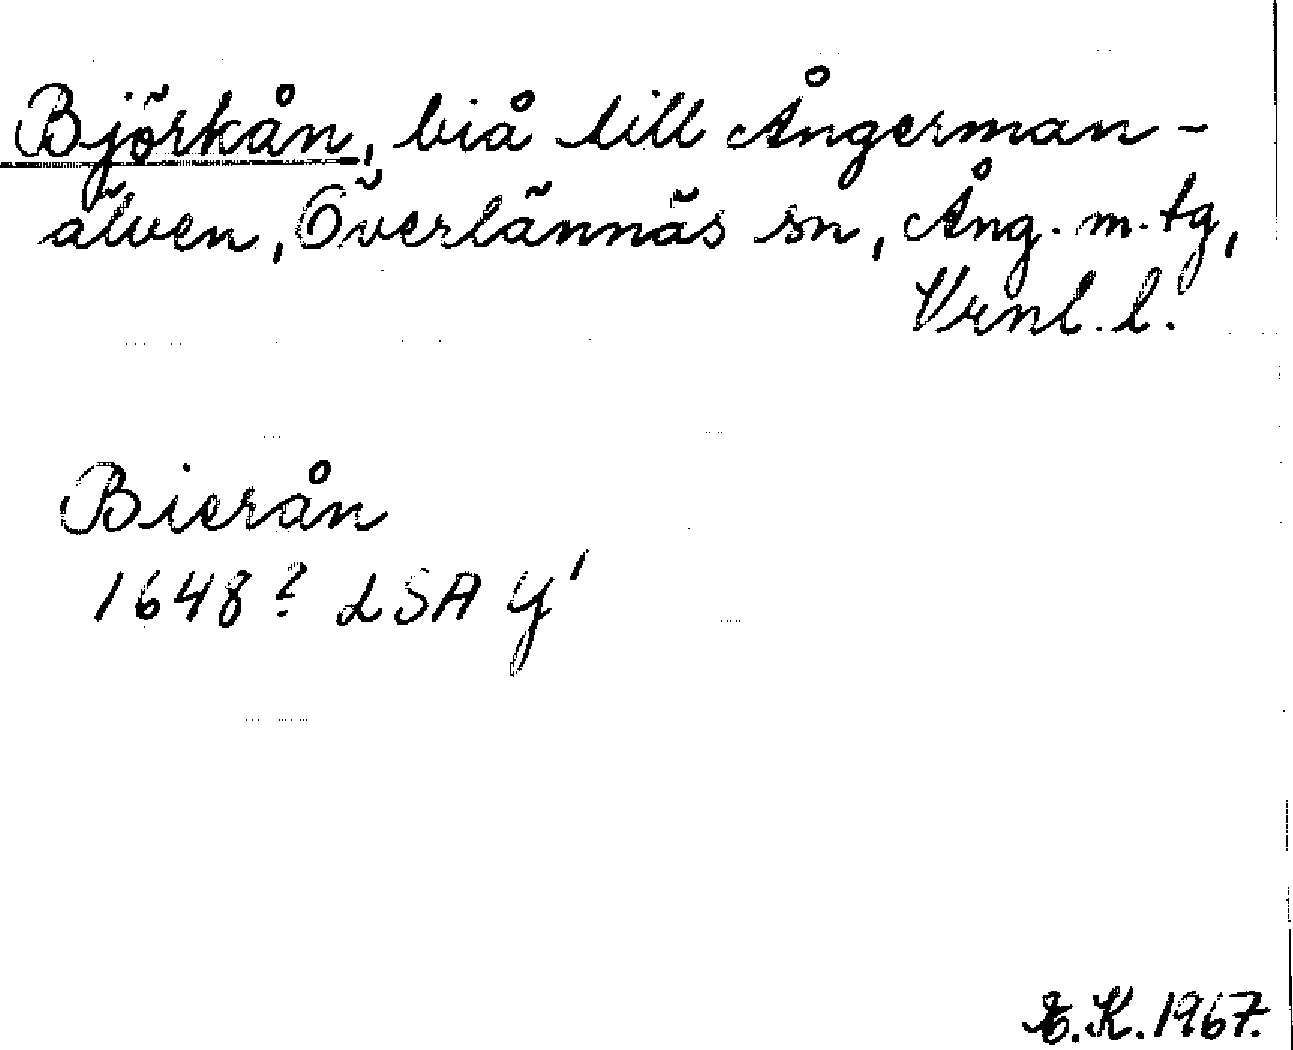 Björkån, biå till Ångerman-
älven, Överlännäs sn, Ång. m. tg,
Vrnl. l.
Bierån
1648? LSA Y'
E.K. 1967.